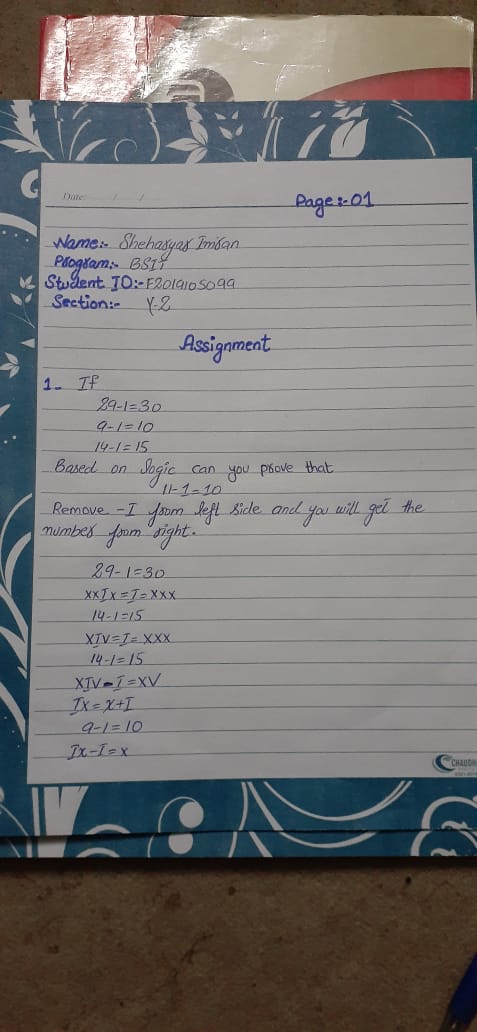 Date: / /
Page :- 01
Name:- Sheharyar Imran
Program:- BSIT
Student ID:- F2019105099
Section:- Y-2
Assignment
1- If
29-1=30
9-1=10
14-1=15
Based on logic can you prove that
11-1=10
Remove -I from left side and you will get the
number from right.
29-1=30
XXIX=I=XXX
14-1=15
XIV=I=XXX
14-1=15
XIV-I=XV
IX=X+I
9-1=10
IX-I=X
CHAUDH